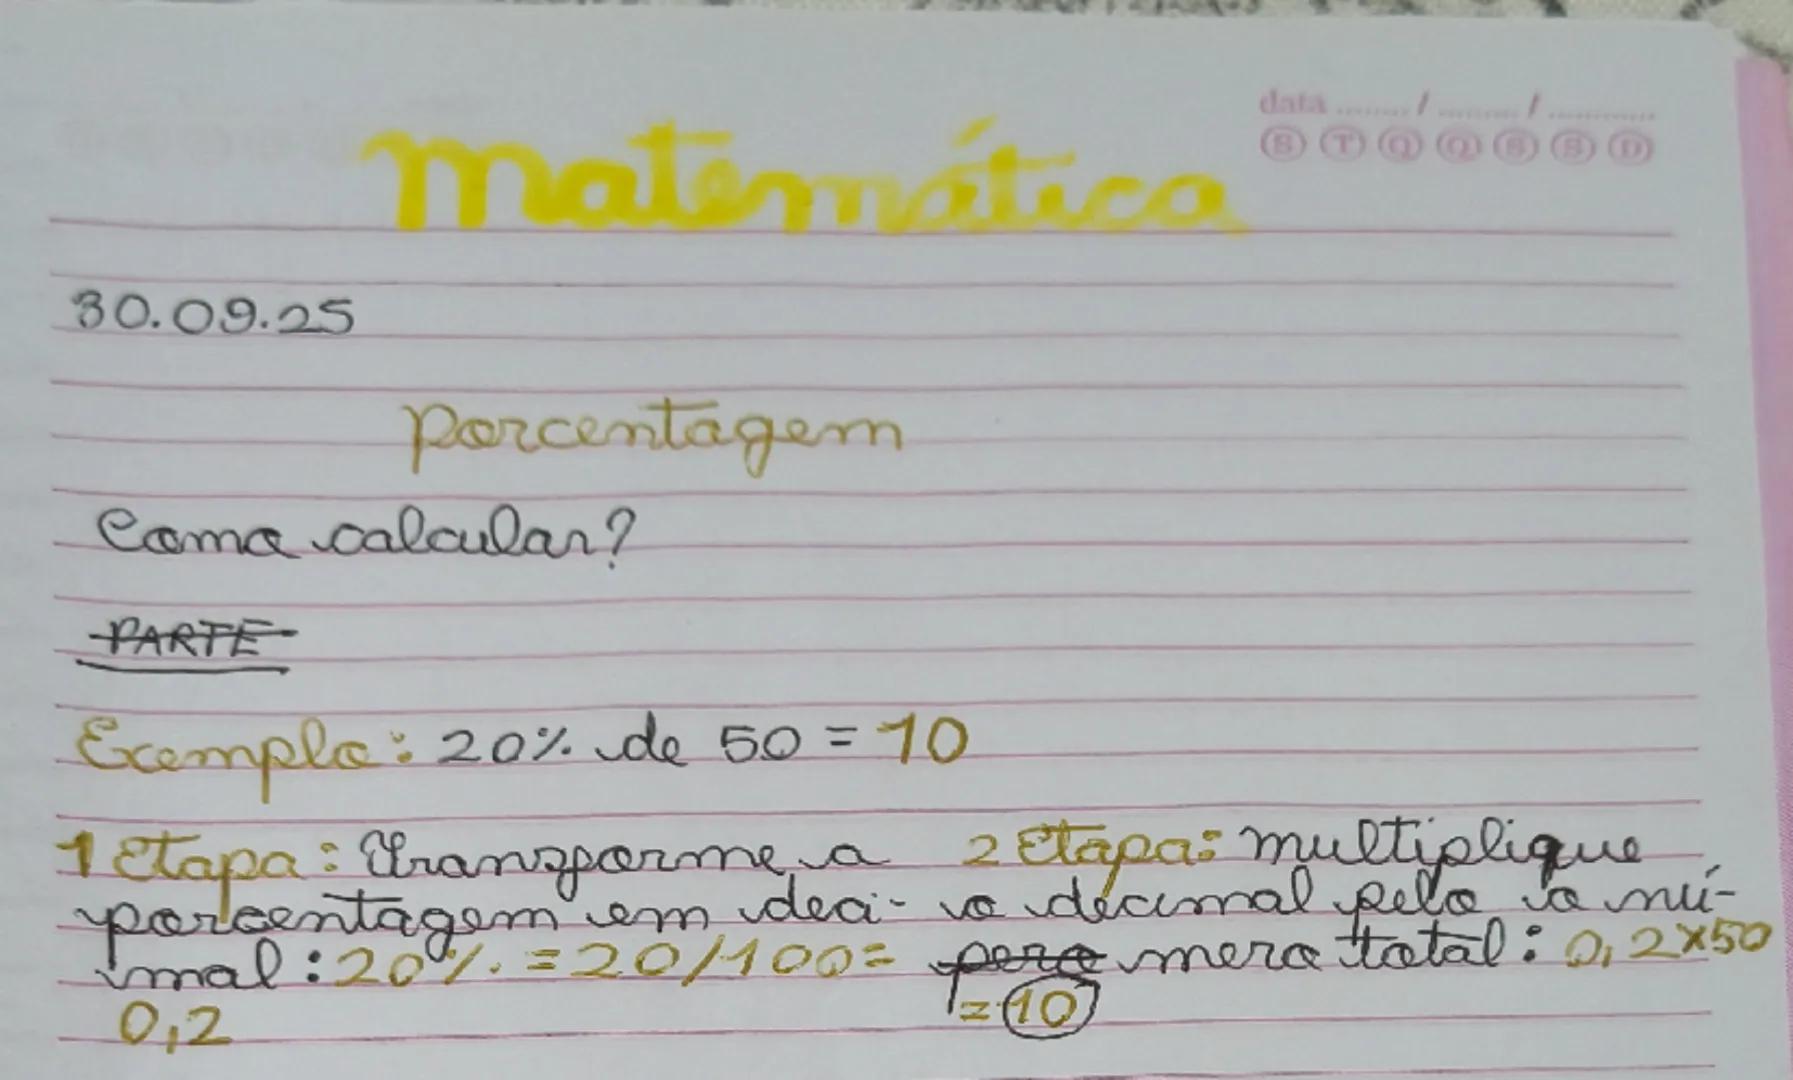 data ....... / ....... / ..........
S T Q Q S S D
Matemática
30.09.25
Porcentagem
Como calcular?
PARTE
Exemplo: 20% de 50 = 10
1 Etapa: Transforme a
porcentagem em deci-
mal: 20% = 20/100=
0,2
2 Etapa: multiplique
o decimal pelo o nú-
pero mero total: 0,2x50
= 10